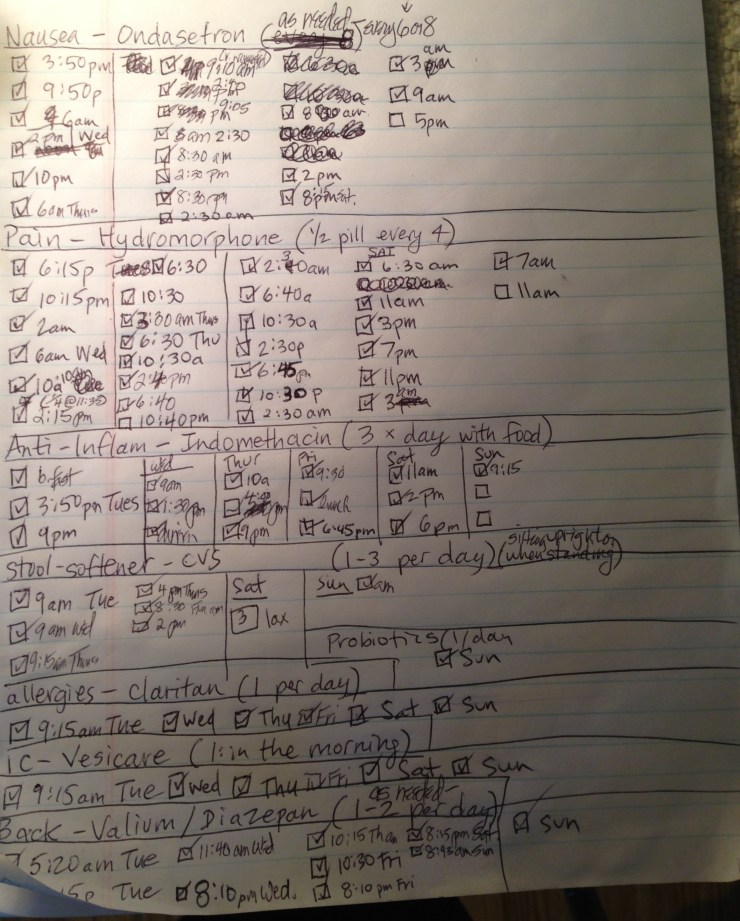 Nausea - Ondasetron (as needed) every 6 or 8
3:50pm
9:50p
6am
2pm Wed
10pm
6am Thurs
9:10am
9:05
8am 2:30
8:30 am
2:30 pm
8:30pm
2:30am
2pm
8pm Sat.
3am
9am
5pm
Pain - Hydromorphone (1/2 pill every 4)
6:15p Tues
10:15pm
2am
6am Wed
10a
2:15pm
6:30
10:30
3:30am Thurs
6:30 Thu
10:30a
2:4pm
6:40
10:40pm
2:30am
6:40a
10:30a
2:30p
6:45pm
10:30p
2:30am
SAT
6:30am
11am
3pm
7pm
11pm
3am
7am
11am
Anti-Inflam - Indomethacin (3 x day with food)
b.fast
3:50pm Tues
9pm
Wed
9am
1:30pm
Thur
10a
9pm
Fri
9:30
lunch
6:45pm
Sat
11am
2pm
6pm
Sun
9:15
Stool-softener - CVS (1-3 per day) (sitting upright or when standing)
9am Tue
9am Wed
9:15am Thurs
4pm Thurs
2pm
Sat
3 lax
Sun am
Probiotics (1/day
Sun
allergies - Claritan (1 per day)
9:15am Tue Wed Thu Fri Sat Sun
IC - Vesicare (1: in the morning)
9:15am Tue Wed Thu Fri Sat Sun
Back - Valium/Diazepan (as needed - 1-2 per day)
5:20am Tue
15p Tue
11:40am Wed
8:10pm Wed.
10:15 Thu
10:30 Fri
8:10pm Fri
8:15pm Sat
8:45am Sun
Sun